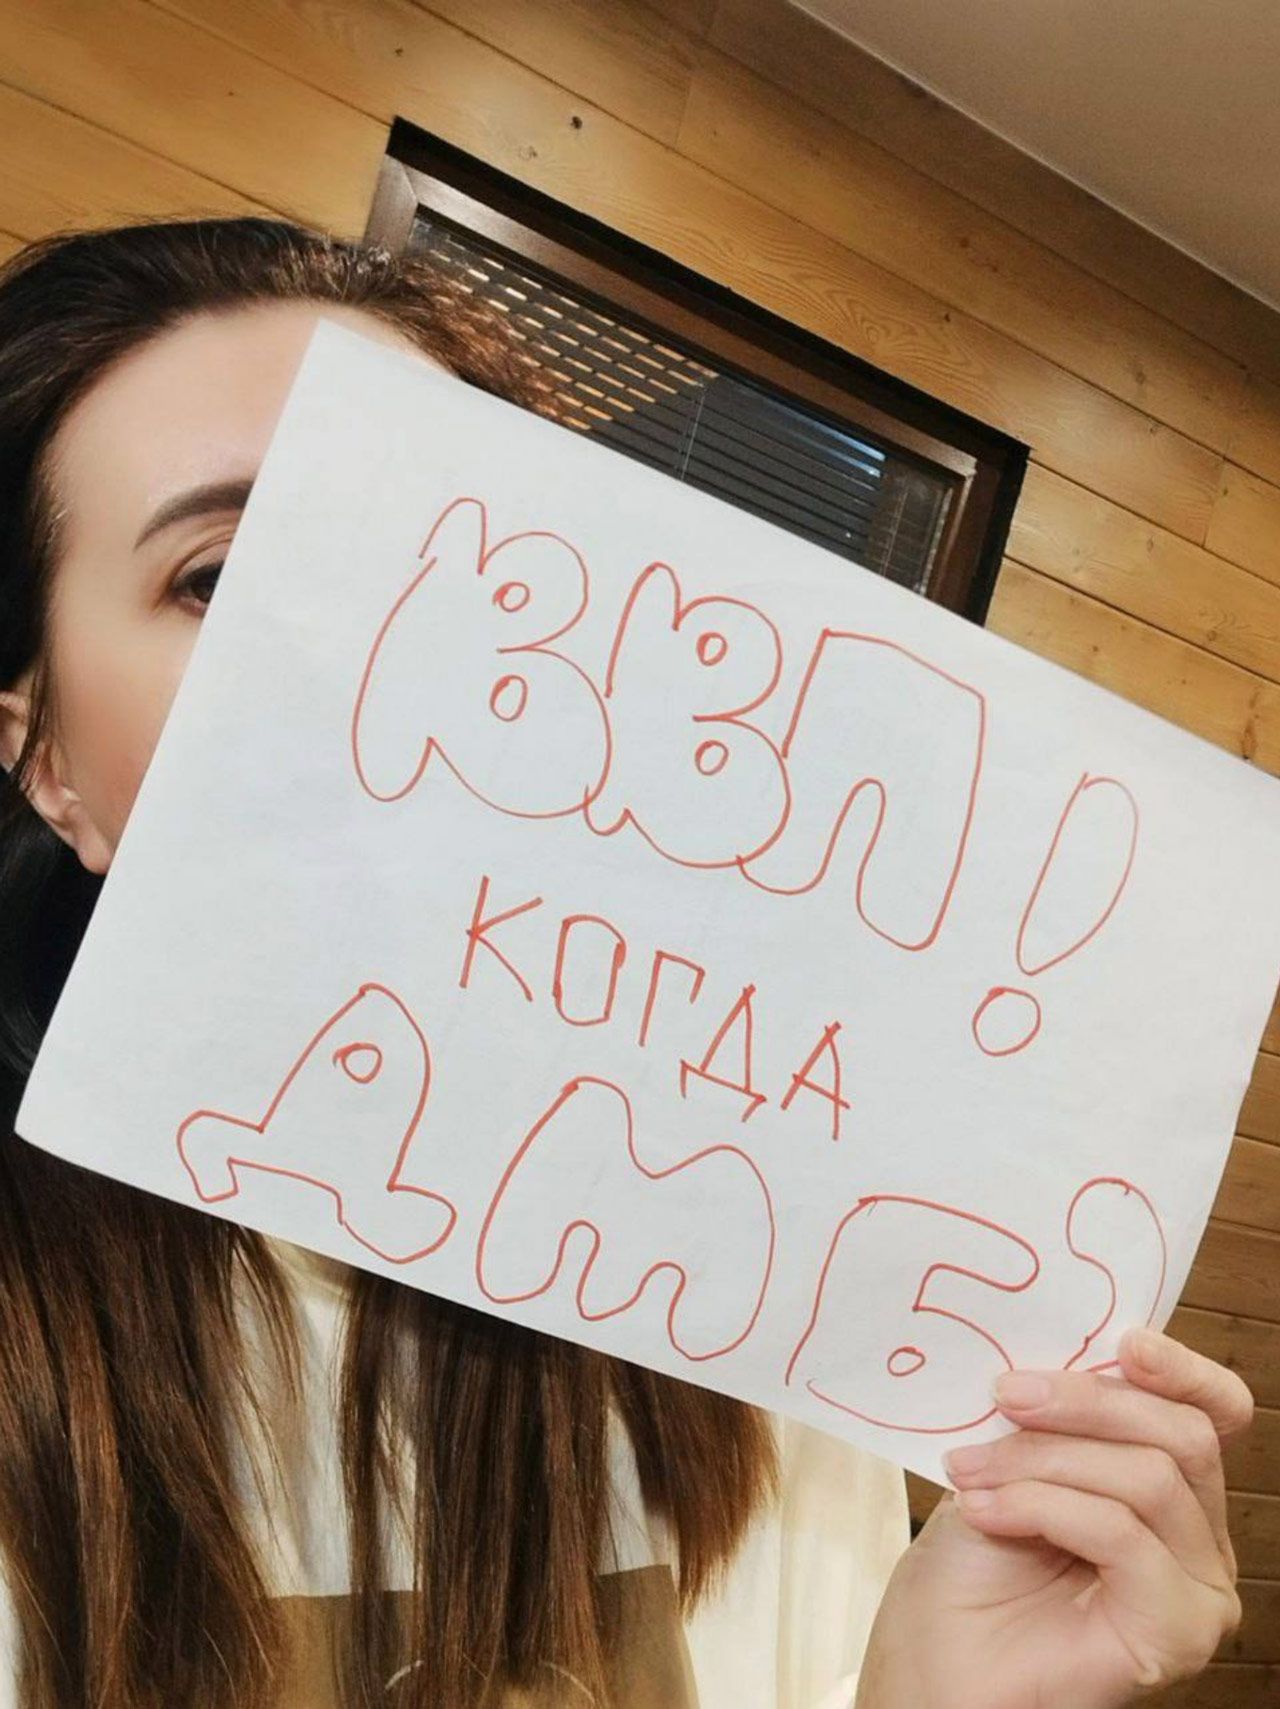 ВВП!
КОГДА
ДМБ?